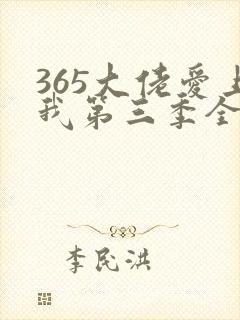 365大佬爱上
我第三季全
李民洪